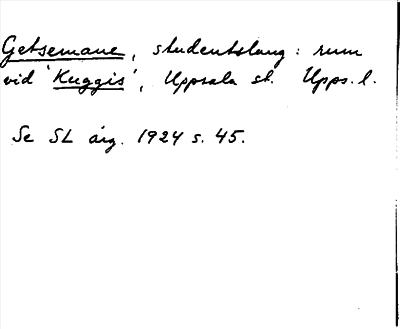 Getsemane, studentslang: rum
vid 'Kuggis', Uppsala st. Upps. l.
Se SL årg. 1924 s. 45.